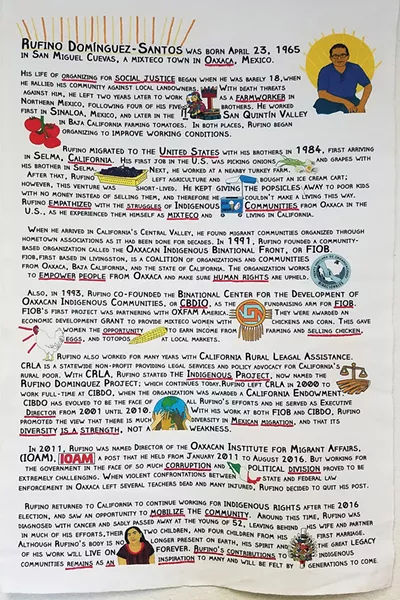 Rufino Domínguez-Santos was born April 23, 1965
in San Miguel Cuevas, a Mixteco town in Oaxaca, Mexico.
His life of organizing for social justice began when he was barely 18, when
he rallied his community against local landowners. With death threats
against him, he left two years later to work as a farmworker in
Northern Mexico, following four of his five brothers. He worked
first in Sinaloa, Mexico, and later in the San Quintín Valley
in Baja California farming tomatoes. In both places, Rufino began
organizing to improve working conditions.
Rufino migrated to the United States with his brothers in 1984, first arriving
in Selma, California. His first job in the U.S. was picking onions and grapes with
his brother in Selma. Next, he worked at a nearby turkey farm.
After that, Rufino left agriculture and bought an ice cream cart;
however, this venture was short-lived. He kept giving the popsicles away to poor kids
with no money instead of selling them, and therefore he couldn't make a living this way.
Rufino empathized with the struggles of Indigenous Communities from Oaxaca in the
U.S., as he experienced them himself as Mixteco and living in California.
When he arrived in California's Central Valley, he found migrant communities organized through
hometown associations as it had been done for decades. In 1991, Rufino founded a community-
based organization called the Oaxacan Indigenous Binational Front, or FIOB.
FIOB, first based in Livingston, is a coalition of organizations and communities
from Oaxaca, Baja California, and the state of California. The organization works
to empower people from Oaxaca and make sure human rights are upheld.
Also, in 1993, Rufino co-founded the Binational Center for the Development of
Oaxacan Indigenous Communities, or CBDIO, as the fundraising arm for FIOB.
FIOB's first project was partnering with Oxfam America. They were awarded an
economic development grant to provide Mixteco women with chickens and corn. This gave
women the opportunity to earn income from farming and selling chicken,
eggs, and totopos at local markets.
Rufino also worked for many years with California Rural Leagal Assistance.
CRLA is a statewide non-profit providing legal services and policy advocacy for California's
rural poor. With CRLA, Rufino started the Indigenous Project, now named the
Rufino Dominguez Project; which continues today. Rufino left CRLA in 2000 to
work full-time at CIBDO, when the organization was awarded a California Endowment;
CIBDO has evolved to be the face of all Rufino's efforts and he served as Executive
Director from 2001 until 2010. With his work at both FIOB and CIBDO, Rufino
promoted the view that there is much diversity in Mexican migration, and that its
diversity is a strength, not a weakness.
In 2011, Rufino was named Director of the Oaxacan Institute for Migrant Affairs,
(IOAM), IOAM a post that he held from January 2011 to August 2016. But working for
the government in the face of so much corruption and political division proved to be
extremely challenging. When violent confrontations between state and federal law
enforcement in Oaxaca left several teachers dead and many injured, Rufino decided to quit his post.
Rufino returned to California to continue working for indigenous rights after the 2016
election, and saw an opportunity to mobilize the community. Around this time, Rufino was
diagnosed with cancer and sadly passed away at the young of 52, leaving behind his wife and partner
in much of his efforts, their two children, and four children from his first marriage.
Although Rufino's body is no longer present on earth, his spirit and the great legacy
of his work will live on forever. Rufino's contributions to indigenous
communities remains as an inspiration to many and will be felt by generations to come.